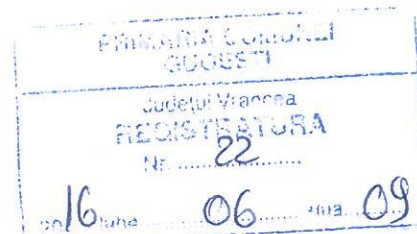 PRIMARIA COMUNEI
GUGESTI
Județul Vrancea
REGISTRATURA
Nr. 22
2016 luna 06 ziua 09